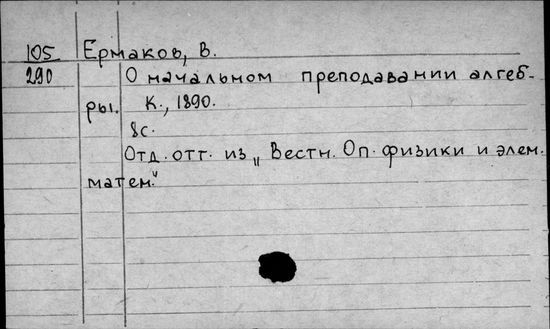 105 Ермаков, В.
290 О начальном преподавании алгеб-
ры. К., 1890.
8с.
Отд. отт. из „Вестн. Оп. физики и элем.
матем."